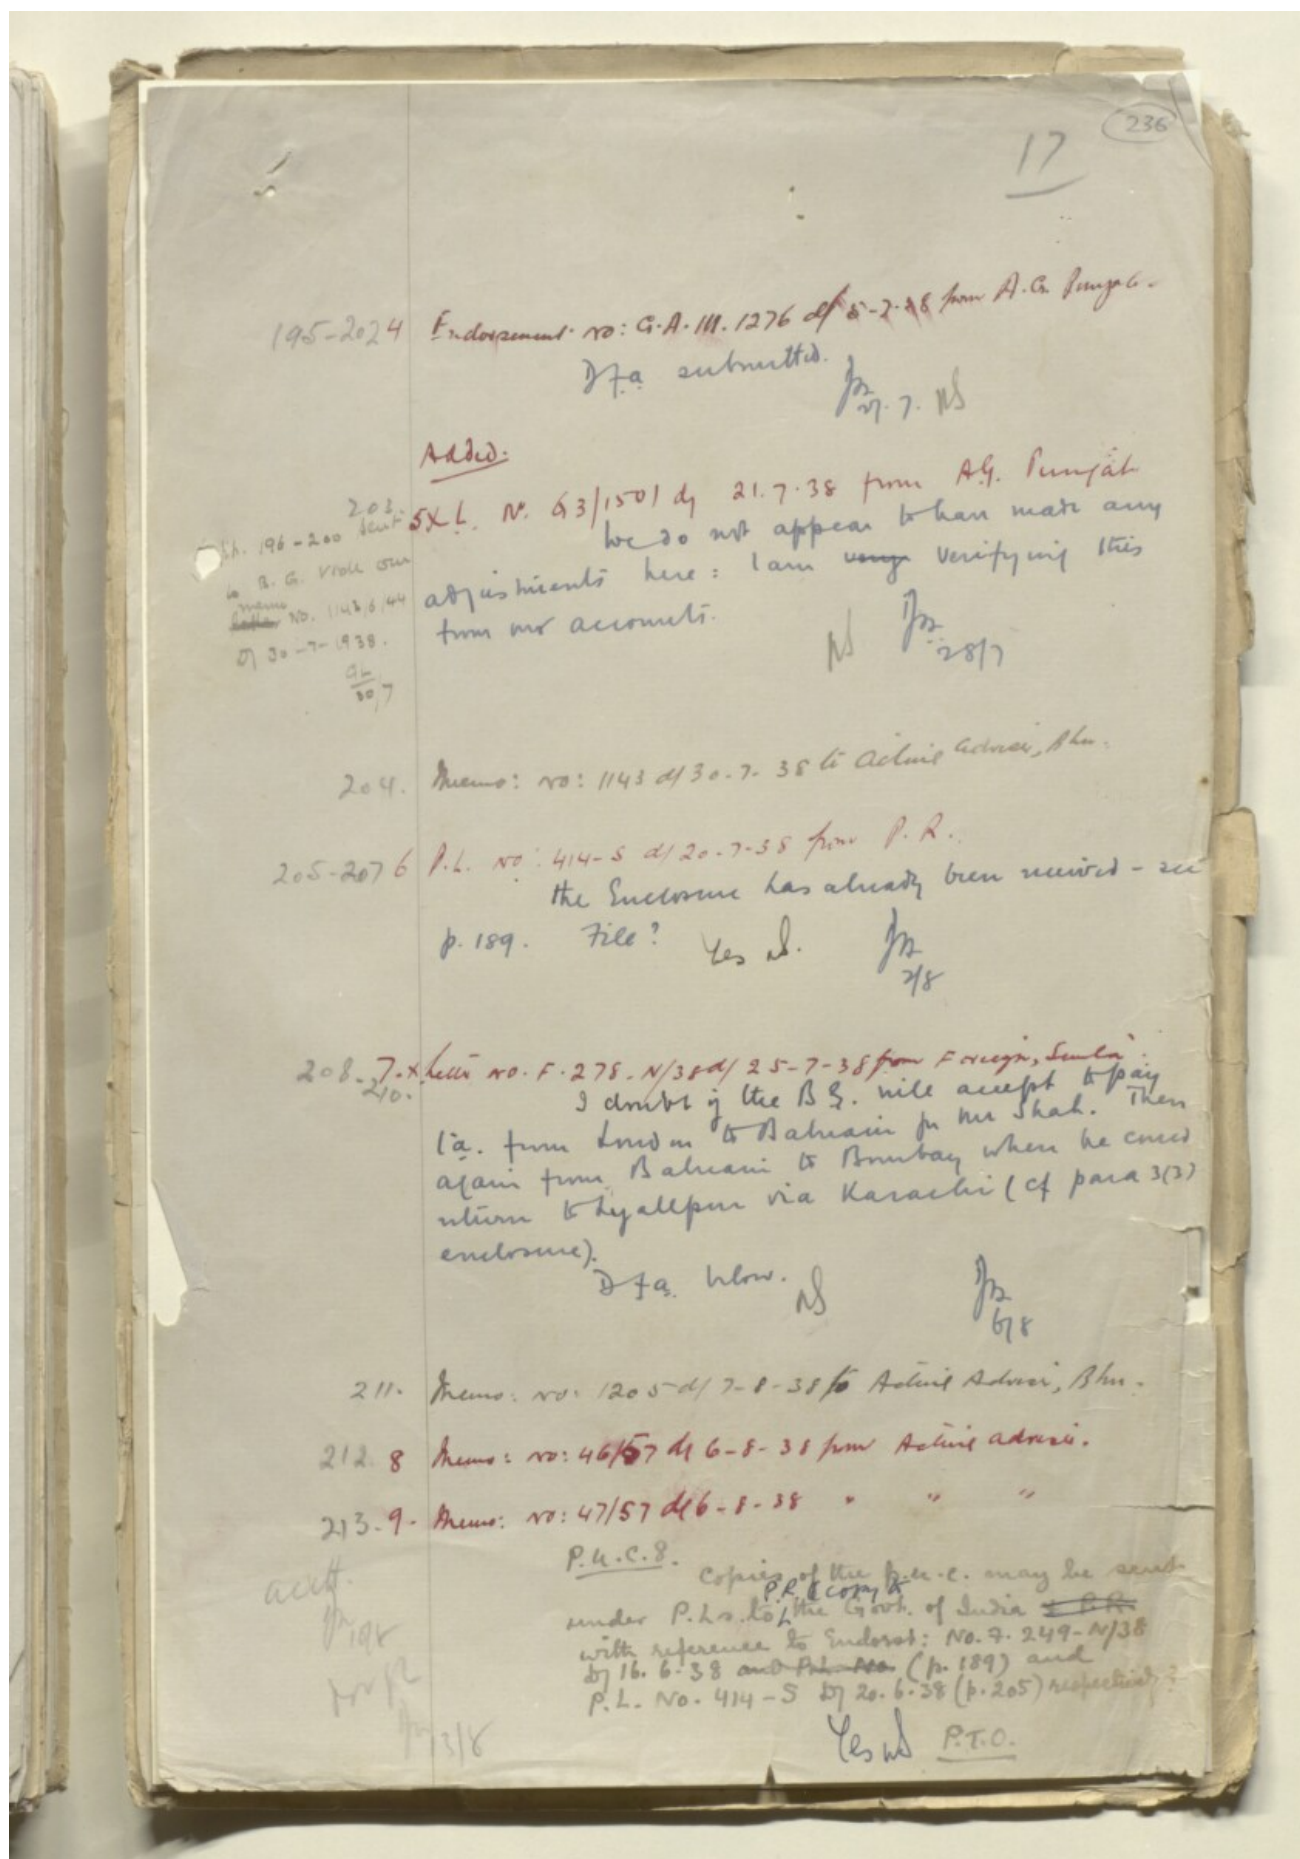 236
17
195-202 4 Endorsement no: G.A.III.1276 d/ 5-7-38 from A.G. Punjab.
D.F.a. submitted.
27.7. NS
Added.
203. 5X L. No. G3/1501 d/ 21.7.38 from A.G. Punjab
We do not appear to have made any
adjustments here: I am verifying this
from our accounts.
28/7
NS
196-200 sent
to B.G. vide our
memo
letter No. 1143/6/44
D/ 30-7-1938.
30/7
204. Memo: no: 1143 d/ 30-7-38 to Acting Adviser, Bhn.
205-207 6 P.L. no: 414-S d/ 20-7-38 from P.R.
the Enclosure has already been received - see
p. 189. File?
Yes NS.
2/8
208-210. 7.X Letter no. F.278-N/38 d/ 25-7-38 from Foreign, Simla.
I doubt if the B.G. will accept to pay
from London to Bahrain for Mr Shah. Then
again from Bahrain to Bombay when he could
return to Lyallpur via Karachi (cf para 3(3)
enclosure).
D.F.a. below. NS
6/8
211. Memo: no: 1205 d/ 7-8-38 to Acting Adviser, Bhn.
212. 8 Memo: no: 46/57 d/ 6-8-38 from Acting adviser.
213. 9. Memo: no: 47/57 d/ 6-8-38 " " "
P.U.C. 8.
Copies of the p.u.c. may be sent
P.R. & copy to
under P.Ls. to the Govt. of India & P.R.
with reference to Endorst: No. F. 249-N/38
D/ 16.6.38 and P.L. No. (p. 189) and
P.L. No. 414-S D/ 20.6.38 (p. 205) respectively?
13/8
Yes NS P.T.O.